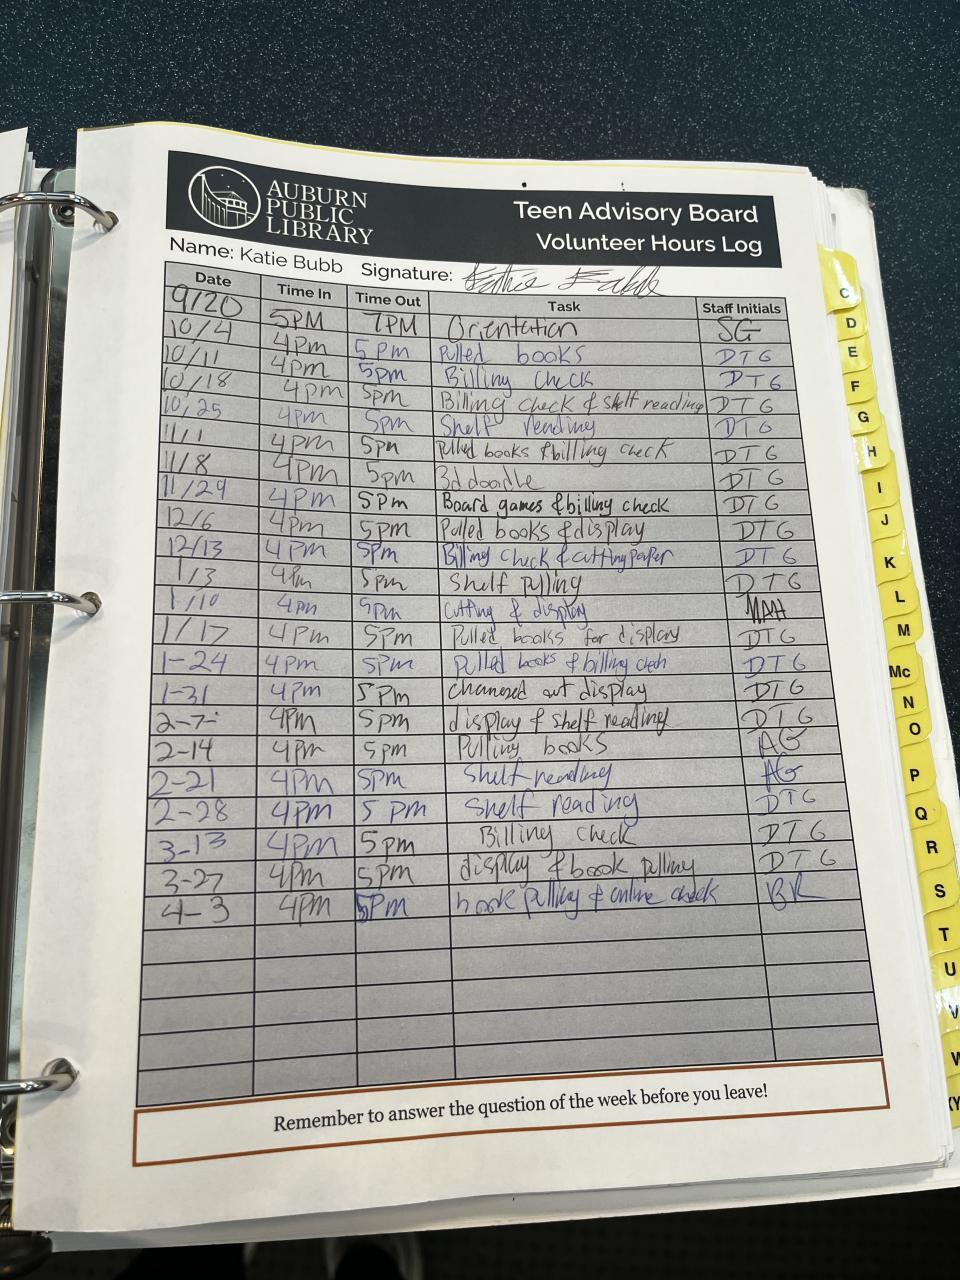 AUBURN
PUBLIC
LIBRARY
Teen Advisory Board
Volunteer Hours Log
Name: Katie Bubb Signature:
Date Time In Time Out Task Staff Initials
9/20 5PM 7PM Orientation SG
10/4 4pm 5pm Pulled books DTG
10/11 4pm 5pm Billing Check DTG
10/18 4pm 5pm Billing check & shelf reading DTG
10/25 4pm 5pm Shelf reading DTG
11/1 4pm 5pm Pulled books & billing check DTG
11/8 4PM 5pm 3d doodle DTG
11/29 4PM 5Pm Board games & billing check DTG
12/6 4pm 5pm Pulled books & display DTG
12/13 4PM 5pm Billing check & cutting paper DTG
1/3 4Pm 5pm Shelf pulling DTG
1/10 4pm 5pm cutting & display MAH
1/17 4Pm 5Pm Pulled books for display DTG
1-24 4pm 5pm pulled books & billing DTG
1-31 4pm 5pm out display DTG
2-7 4Pm 5pm display & shelf reading DTG
2-14 4Pm 5pm Pulling books AG
2-21 4PM 5pm Shelf reading AG
2-28 4PM 5 pm Shelf reading DTG
3-13 4PM 5pm Billing check DTG
3-27 4Pm 5pm display & book pulling DTG
4-3 4PM 5Pm book pulling & online check BR
Remember to answer the question of the week before you leave!
C
D
E
F
G
H
I
J
K
L
M
Mc
N
O
P
Q
R
S
T
U
V
W
XY